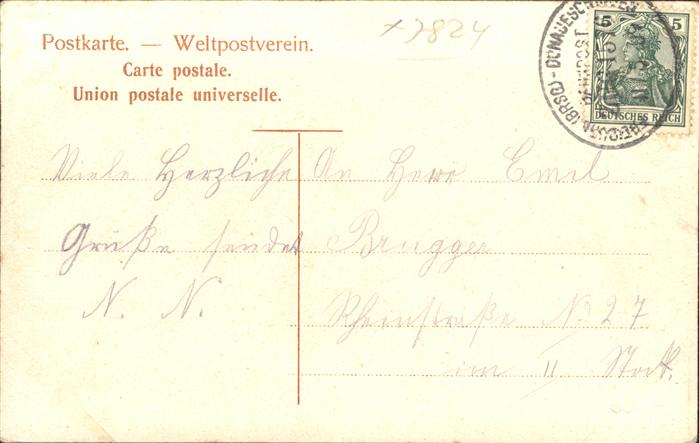 Postkarte. — Weltpostverein.
Carte postale.
Union postale universelle.
x7824
5 5
DEUTSCHES REICH
DONAUESCHINGEN
BAHNPOST
(BRSG)
Viele Herzliche
Grüße sendet
N. N.
An Herr Emil
Brugger
Rheinstraße No 27
im II Stock.